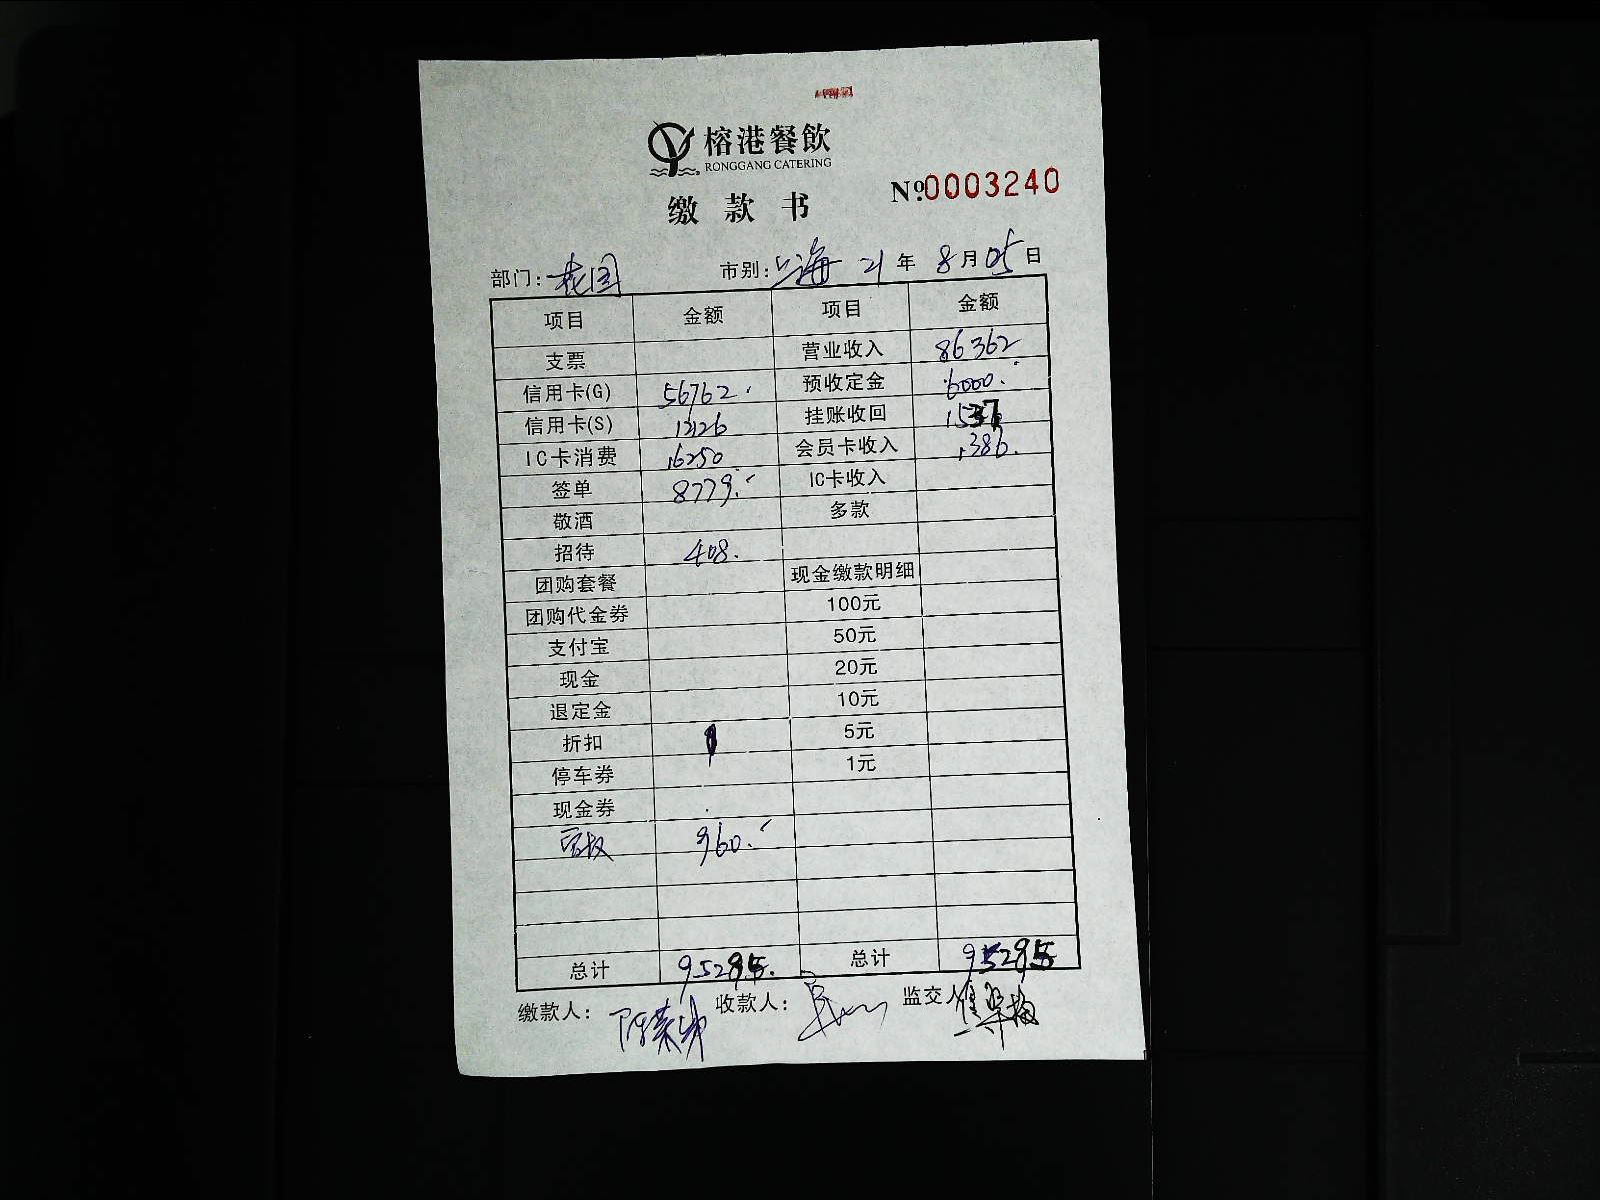 榕港餐飲
RONGGANG CATERING
缴款书
№0003240
部门: 花园 市别: 上海 21年 8月05日
项目 金额 项目 金额
支票 营业收入 86362
信用卡(G) 56762. 预收定金 6000.
信用卡(S) 12126 挂账收回 1537
IC卡消费 16250 会员卡收入 1386.
签单 8779. IC卡收入
敬酒 多款
招待 408.
团购套餐 现金缴款明细
团购代金券 100元
支付宝 50元
现金 20元
退定金 10元
折扣 5元
停车券 1元
现金券
960.
总计 95285. 总计 95285
缴款人: 收款人: 监交人